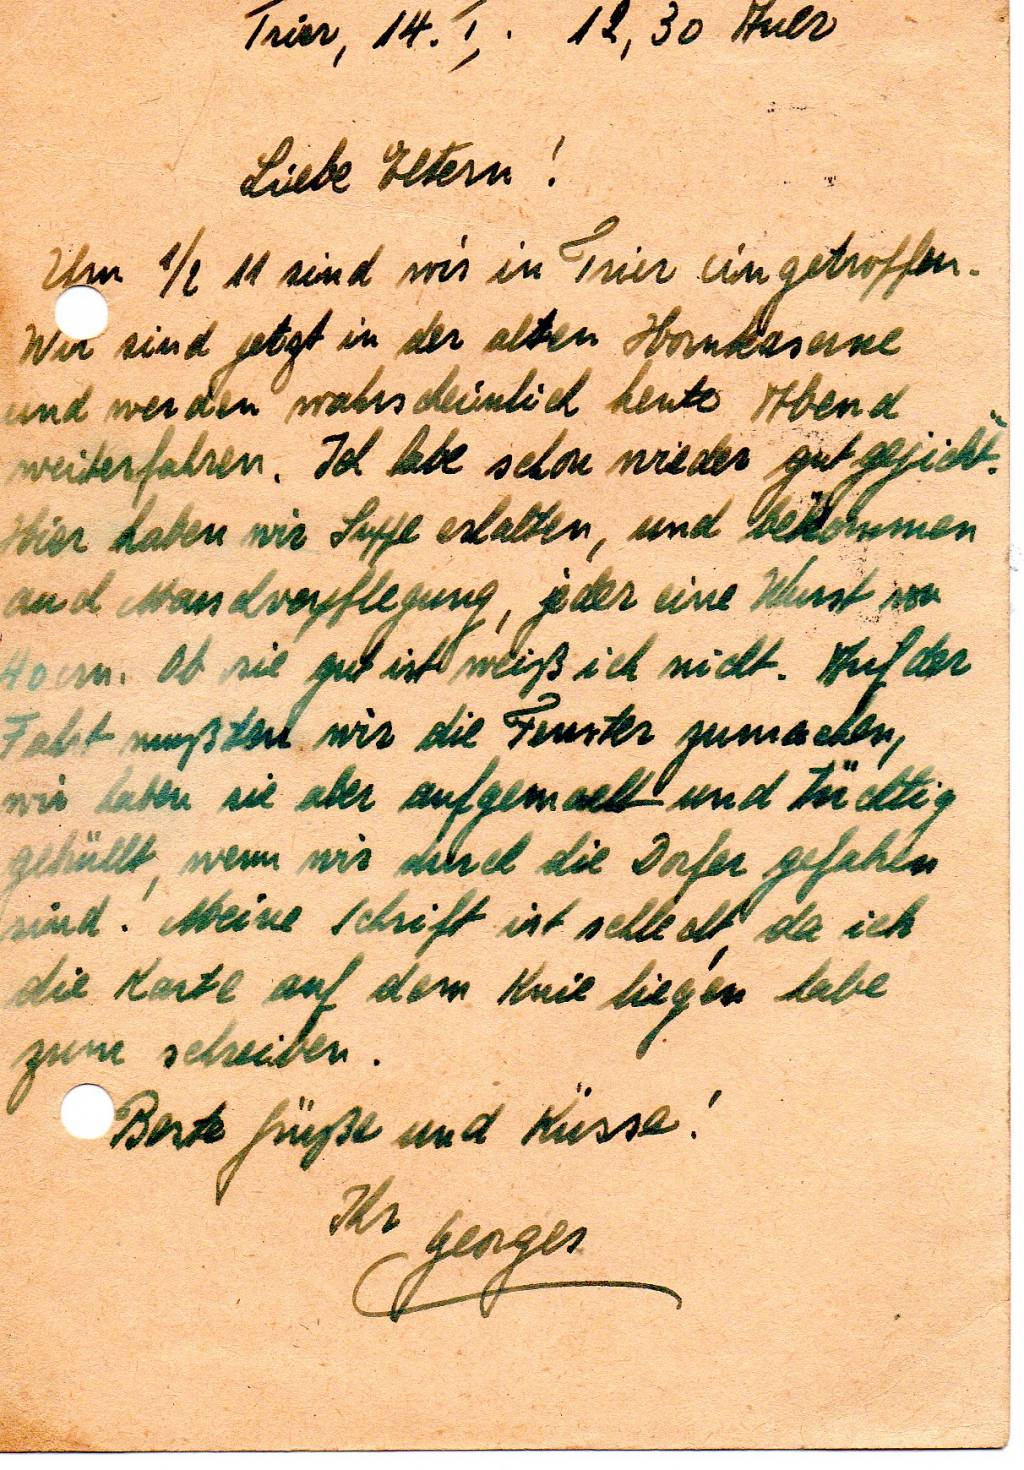 Trier, 14. I. 12,30 Auer
Liebe Eltern!
Um 1/2 11 sind wir in Trier eingetroffen.
Wir sind jetzt in der alten Hornkaserne
und werden wahrscheinlich heute Abend
weiterfahren. Ich habe schon wieder gut "gejickt".
Hier haben wir Suppe erhalten, und bekommen
auch Marschverpflegung, jeder eine Wurst von
40 cm. Ob sie gut ist weiß ich nicht. Auf der
Fahrt mußten wir die Fenster zumachen,
wir haben sie aber aufgemacht und tüchtig
gebrüllt, wenn wir durch die Dorfer gefahren
sind! Meine Schrift ist schlecht, da ich
die Karte auf dem Knie liegen habe
zum schreiben.
Beste Grüße und Küsse!
Ihr Georges